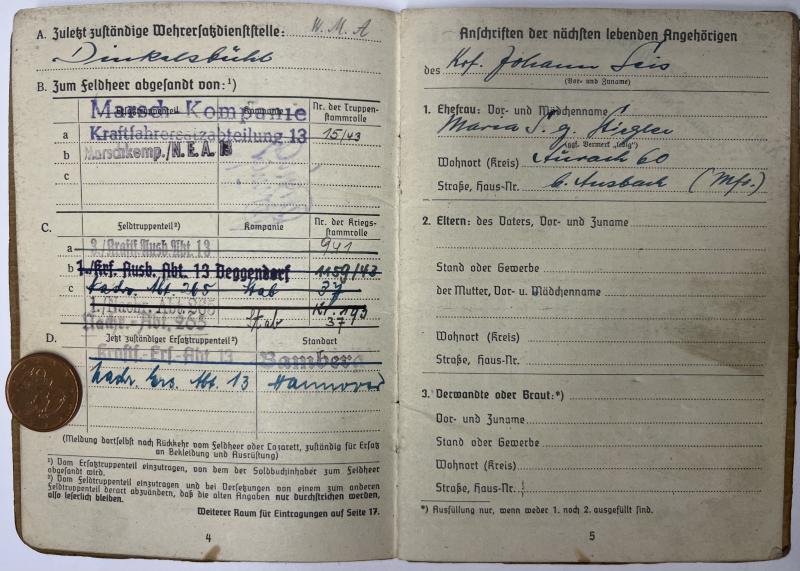 A. Zuletzt zuständige Wehrersatzdienststelle: W.M.A
Dinkelsbühl
B. Zum Feldheer abgesandt von:¹)
Kompanie
Nr. der Truppen-
stammrolle
Marsch Kompanie
a Kraftfahrersatzabteilung 13 15/43
b Marschkomp./N.E.A. 13
c
C. Feldtruppenteil²) Kompanie Nr. der Kriegs-
stammrolle
a 3./Kraftf. Ausb. Abt. 13 941
b 1./Krf. Ausb. Abt. 13 Deggendorf 1159/43
c Nachr. Abt. 265 Stab 37
1./Nachr. Abt. 265
Nachr.-Abt. 265 Stab 37
D. Jetzt zuständiger Ersatztruppenteil²) Standort
Kraftf.-Ers.-Abt. 13 Bamberg
Nachr. Ers. Abt. 13 Hannover
(Meldung dortselbst nach Rückkehr vom Feldheer oder Lazarett, zuständig für Ersatz
an Bekleidung und Ausrüstung)
¹) Vom Ersatztruppenteil einzutragen, von dem der Soldbuchinhaber zum Feldheer
abgesandt wird.
²) Vom Feldtruppenteil einzutragen und bei Versetzungen von einem zum anderen
Feldtruppenteil derart abzuändern, daß die alten Angaben nur durchstrichen werden,
also leserlich bleiben.
Weiterer Raum für Eintragungen auf Seite 17.
4
Anschriften der nächsten lebenden Angehörigen
des Krf. Johann Seis
(Vor- und Zuname)
1. Ehefrau: Vor- und Mädchenname
Maria S. g.
(ggf. Vermerk „ledig")
Wohnort (Kreis) Aurach 60
Straße, Haus-Nr. b. Ansbach (Mfr.)
2. Eltern: des Vaters, Vor- und Zuname
Stand oder Gewerbe
der Mutter, Vor- u. Mädchenname
Wohnort (Kreis)
Straße, Haus-Nr.
3. Verwandte oder Braut:*)
Vor- und Zuname
Stand oder Gewerbe
Wohnort (Kreis)
Straße, Haus-Nr.
*) Ausfüllung nur, wenn weder 1. noch 2. ausgefüllt sind.
5